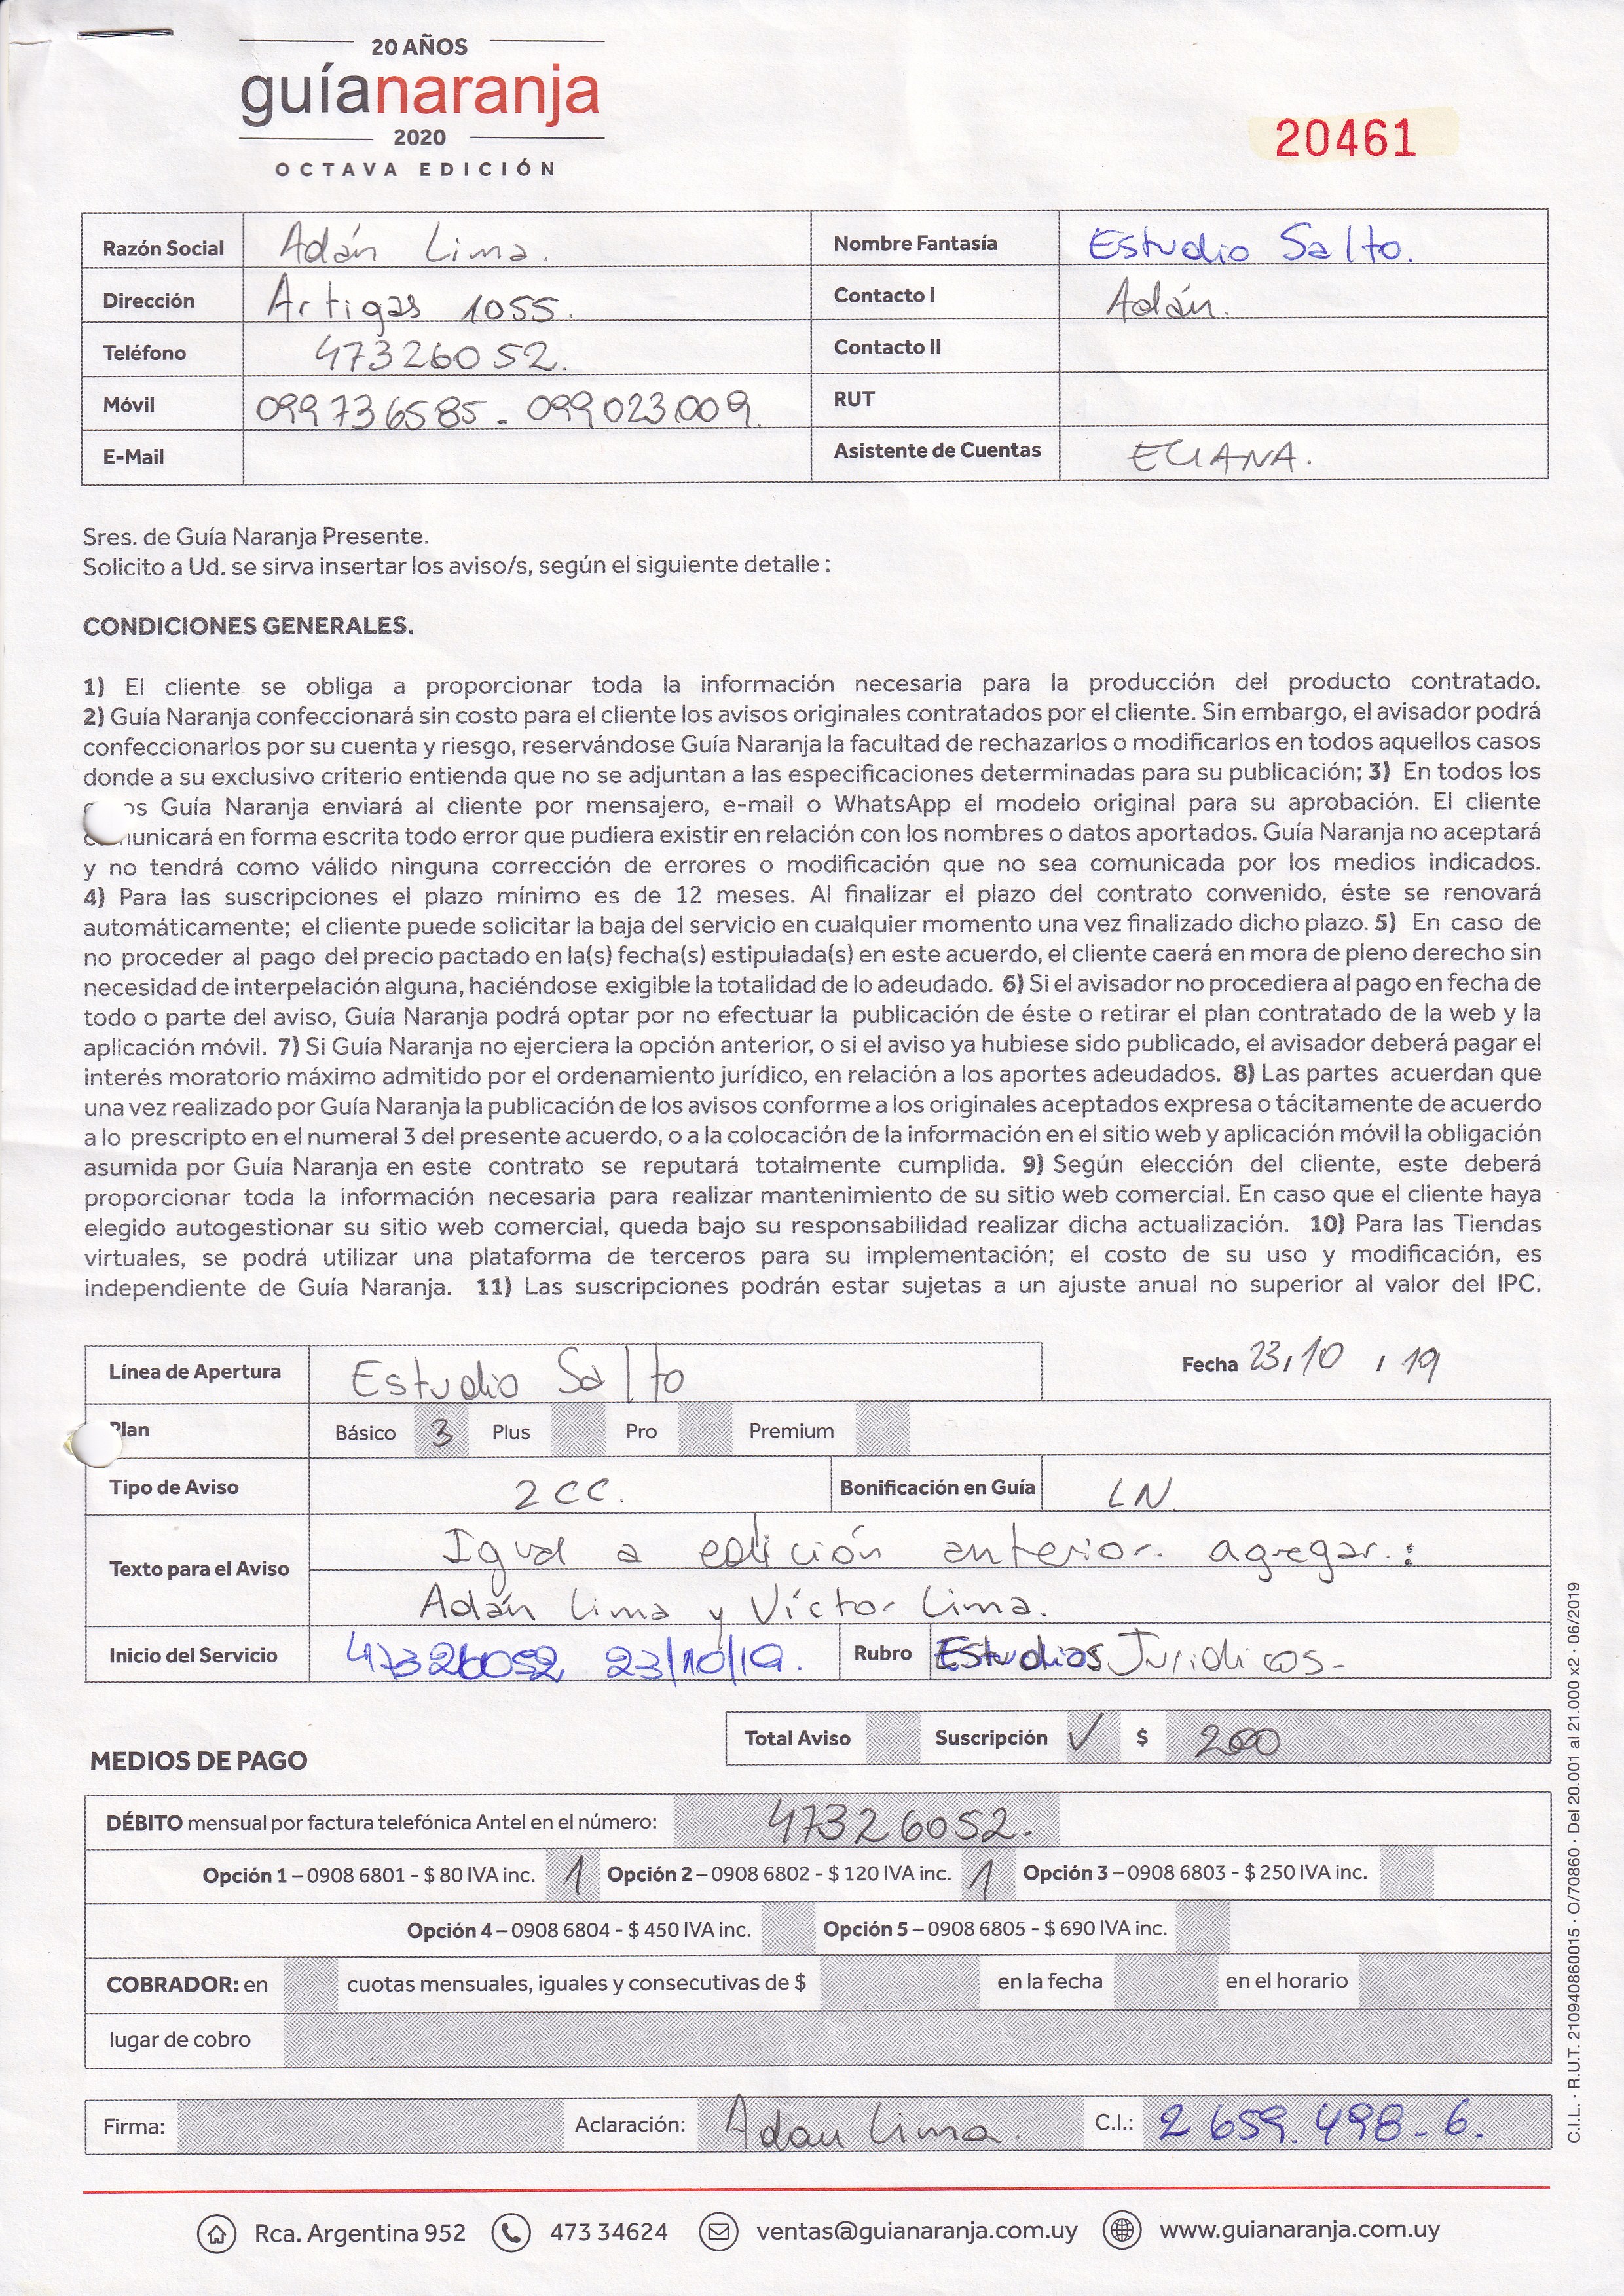 20 AÑOS
guíanaranja
2020
OCTAVA EDICIÓN
20461
Razón Social Adán Lima. Nombre Fantasía Estudio Salto.
Dirección Artigas 1055. Contacto I Adán.
Teléfono 47326052. Contacto II
Móvil 099736585 - 099023009. RUT
E-Mail Asistente de Cuentas ELIANA.
Sres. de Guía Naranja Presente.
Solicito a Ud. se sirva insertar los aviso/s, según el siguiente detalle :
CONDICIONES GENERALES.
1) El cliente se obliga a proporcionar toda la información necesaria para la producción del producto contratado.
2) Guía Naranja confeccionará sin costo para el cliente los avisos originales contratados por el cliente. Sin embargo, el avisador podrá
confeccionarlos por su cuenta y riesgo, reservándose Guía Naranja la facultad de rechazarlos o modificarlos en todos aquellos casos
donde a su exclusivo criterio entienda que no se adjuntan a las especificaciones determinadas para su publicación; 3) En todos los
Guía Naranja enviará al cliente por mensajero, e-mail o WhatsApp el modelo original para su aprobación. El cliente
comunicará en forma escrita todo error que pudiera existir en relación con los nombres o datos aportados. Guía Naranja no aceptará
y no tendrá como válido ninguna corrección de errores o modificación que no sea comunicada por los medios indicados.
4) Para las suscripciones el plazo mínimo es de 12 meses. Al finalizar el plazo del contrato convenido, éste se renovará
automáticamente; el cliente puede solicitar la baja del servicio en cualquier momento una vez finalizado dicho plazo. 5) En caso de
no proceder al pago del precio pactado en la(s) fecha(s) estipulada(s) en este acuerdo, el cliente caerá en mora de pleno derecho sin
necesidad de interpelación alguna, haciéndose exigible la totalidad de lo adeudado. 6) Si el avisador no procediera al pago en fecha de
todo o parte del aviso, Guía Naranja podrá optar por no efectuar la publicación de éste o retirar el plan contratado de la web y la
aplicación móvil. 7) Si Guía Naranja no ejerciera la opción anterior, o si el aviso ya hubiese sido publicado, el avisador deberá pagar el
interés moratorio máximo admitido por el ordenamiento jurídico, en relación a los aportes adeudados. 8) Las partes acuerdan que
una vez realizado por Guía Naranja la publicación de los avisos conforme a los originales aceptados expresa o tácitamente de acuerdo
a lo prescripto en el numeral 3 del presente acuerdo, o a la colocación de la información en el sitio web y aplicación móvil la obligación
asumida por Guía Naranja en este contrato se reputará totalmente cumplida. 9) Según elección del cliente, este deberá
proporcionar toda la información necesaria para realizar mantenimiento de su sitio web comercial. En caso que el cliente haya
elegido autogestionar su sitio web comercial, queda bajo su responsabilidad realizar dicha actualización. 10) Para las Tiendas
virtuales, se podrá utilizar una plataforma de terceros para su implementación; el costo de su uso y modificación, es
independiente de Guía Naranja. 11) Las suscripciones podrán estar sujetas a un ajuste anual no superior al valor del IPC.
Línea de Apertura Estudio Salto Fecha 23/10/19
Plan Básico 3 Plus Pro Premium
Tipo de Aviso 2CC. Bonificación en Guía LN
Texto para el Aviso Igual a edición anterior. agregar.:
Adán Lima y Víctor Lima.
Inicio del Servicio 47326052 23/10/19. Rubro Estudios Jurídicos-
Total Aviso Suscripción ✓ $ 200
MEDIOS DE PAGO
DÉBITO mensual por factura telefónica Antel en el número: 47326052.
Opción 1 – 0908 6801 - $ 80 IVA inc. 1 Opción 2 – 0908 6802 - $ 120 IVA inc. 1 Opción 3 – 0908 6803 - $ 250 IVA inc.
Opción 4 – 0908 6804 - $ 450 IVA inc. Opción 5 – 0908 6805 - $ 690 IVA inc.
COBRADOR: en cuotas mensuales, iguales y consecutivas de $ en la fecha en el horario
lugar de cobro
Firma: Aclaración: Adan Lima. C.I.: 2 659.498-6.
Rca. Argentina 952 473 34624 ventas@guianaranja.com.uy www.guianaranja.com.uy
C.I.L. · R.U.T. 210940860015 · O/70860 · Del 20.001 al 21.000 x2 · 06/2019